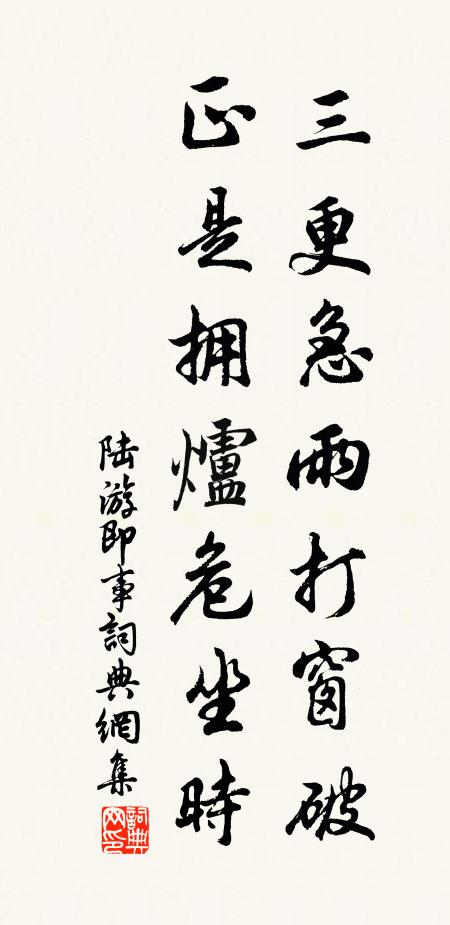 三更急雨打窗破
正是拥爐危坐時
陆游即事詞典網集
詞典網印